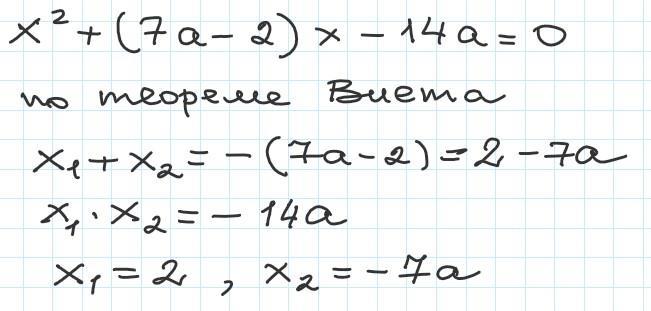 x² + (7a - 2) x - 14a = 0
по теореме Виета
x₁ + x₂ = - (7a - 2) = 2 - 7a
x₁ · x₂ = - 14a
x₁ = 2 , x₂ = - 7a